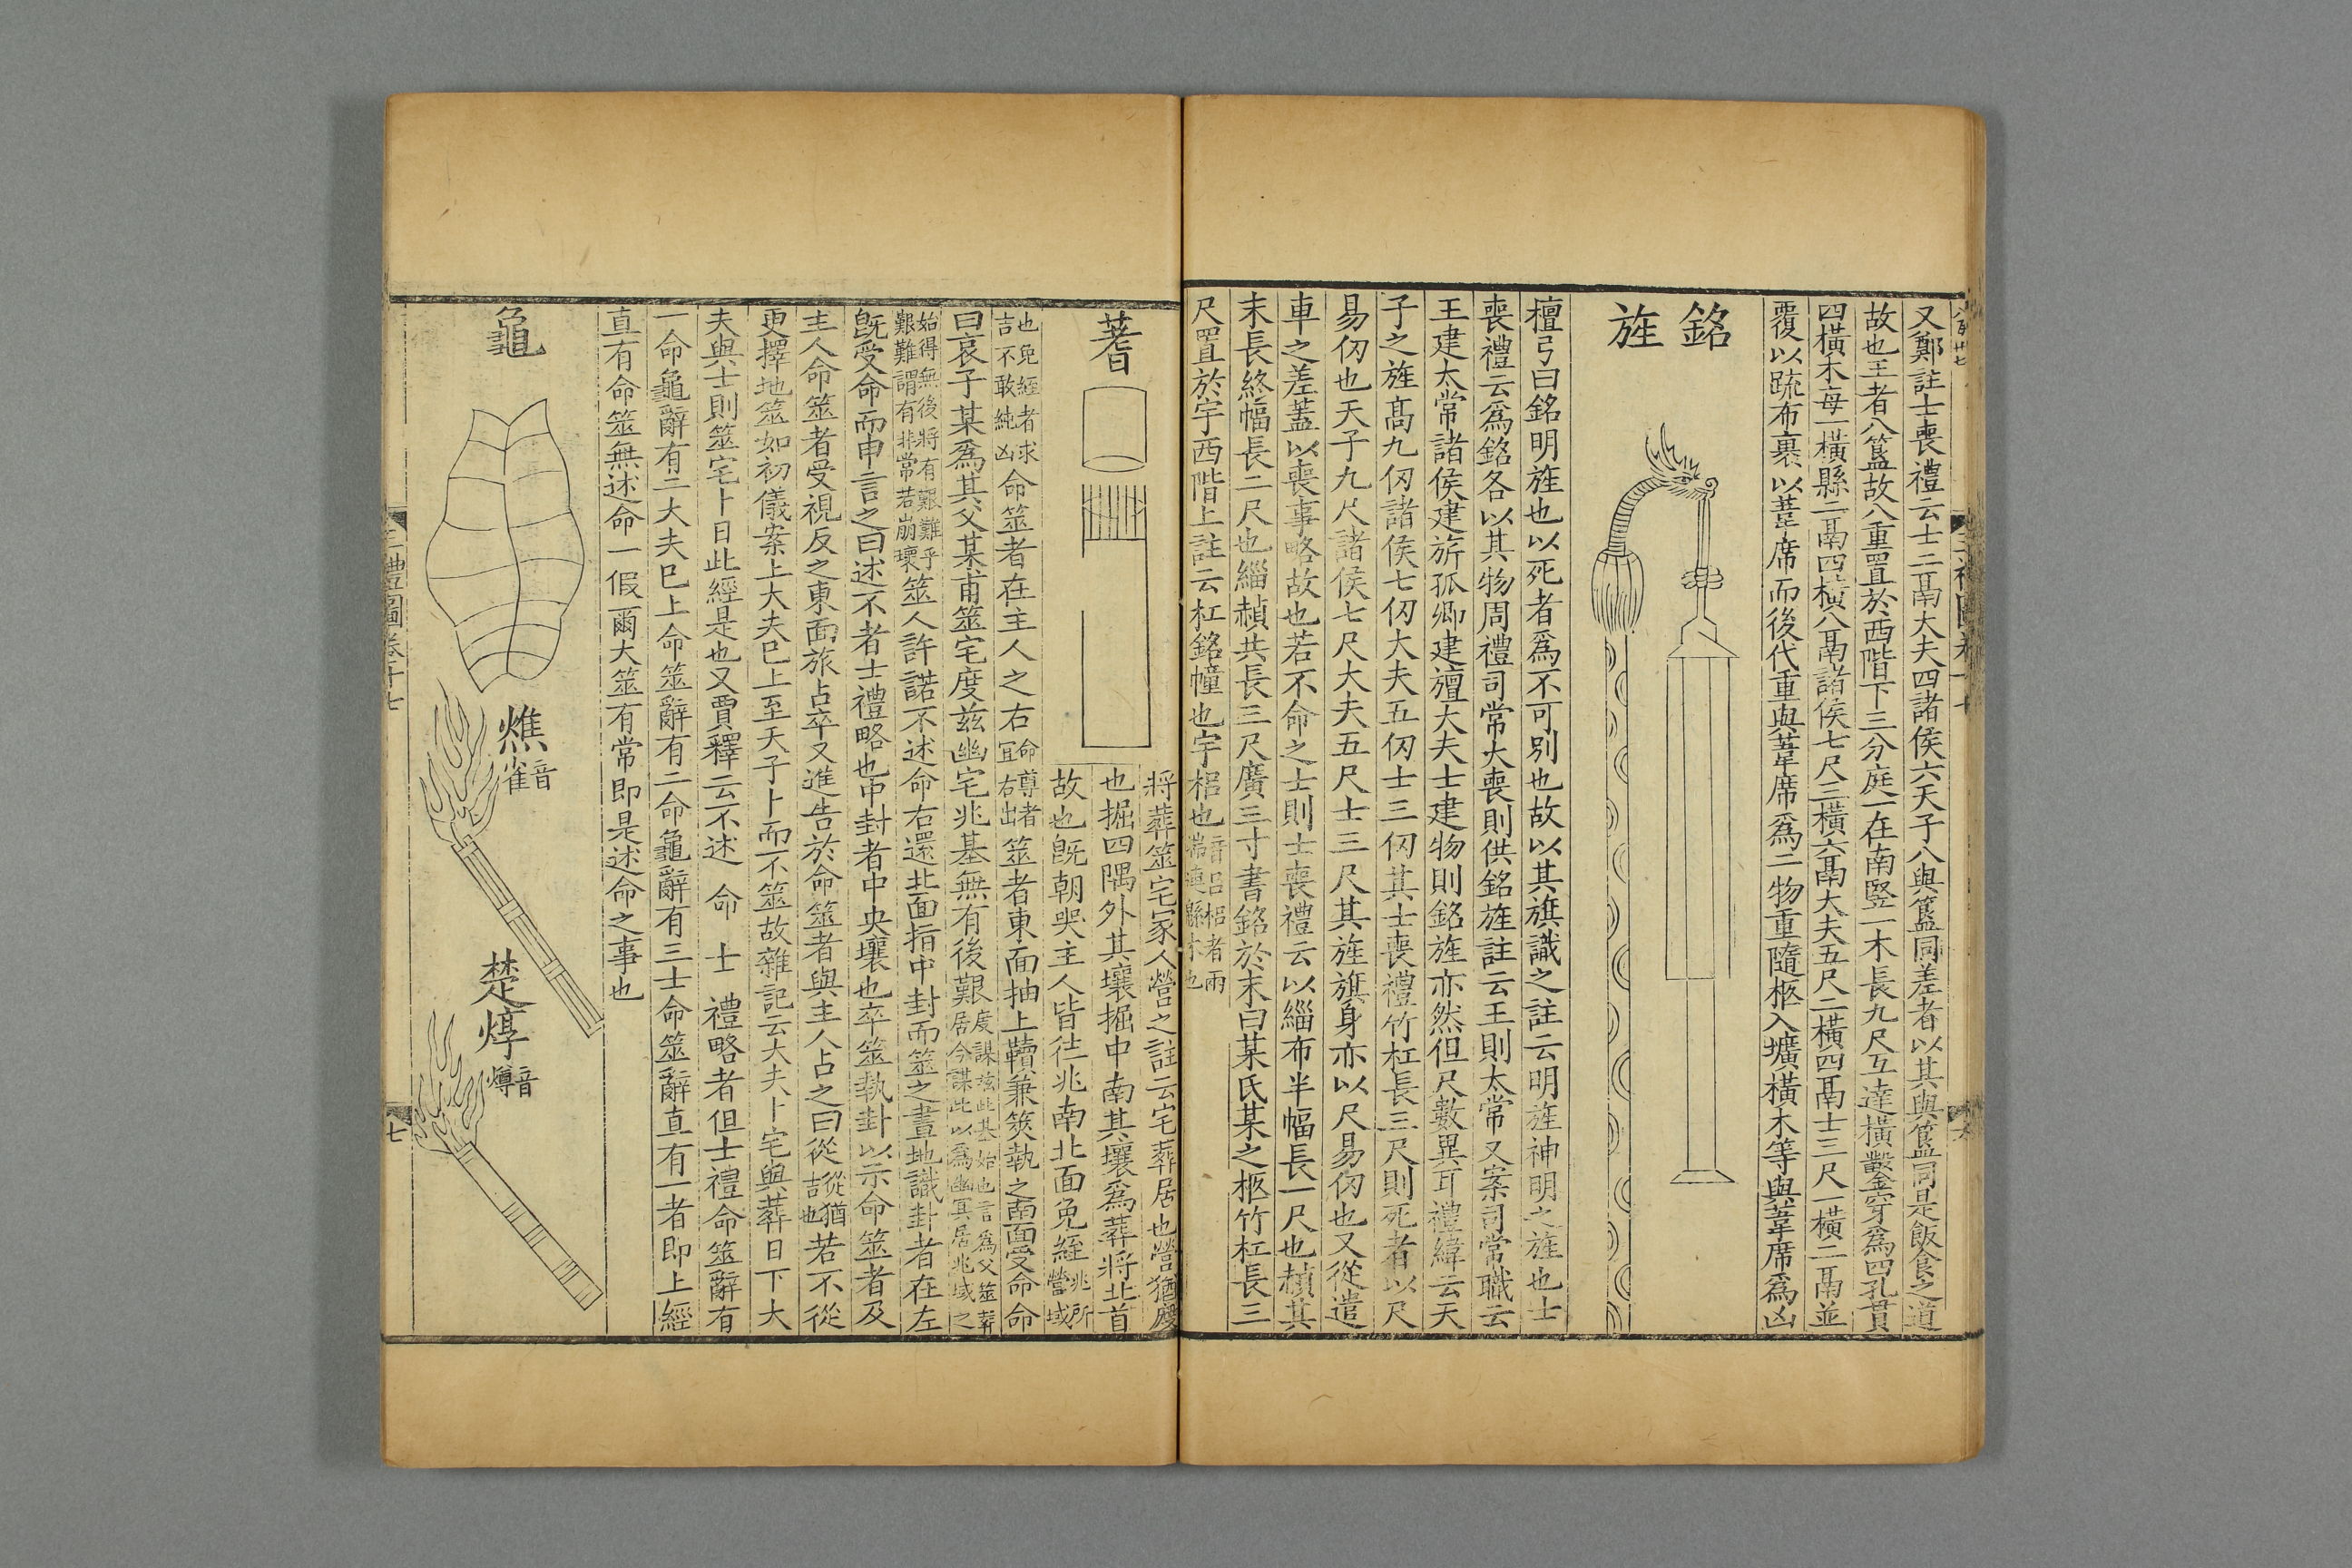 又鄭註士喪禮云士二鬲大夫四諸侯六天子八與簋同差者以其與簋同是飯食之道
故也王者八簋故八重置於西階下三分庭一在南竪一木長九尺互達橫鑿穿爲四孔貫
四橫木每一橫縣二鬲四橫八鬲諸侯七尺三橫六鬲大夫五尺二橫四鬲士三尺一橫二鬲並
覆以疏布裹以葦席而後代重與葦席爲二物重隨柩入壙橫木等與葦席爲凶
銘旌
檀弓曰銘明旌也以死者爲不可別也故以其旗識之註云明旌神明之旌也士
喪禮云爲銘各以其物周禮司常大喪則供銘旌註云王則太常又案司常職云
王建太常諸侯建旂孤卿建旜大夫士建物則銘旌亦然但尺數異耳禮緯云天
子之旌髙九仞諸侯七仞大夫五仞士三仞其士喪禮竹杠長三尺則死者以尺
易仞也天子九尺諸侯七尺大夫五尺士三尺其旌旗身亦以尺易仞也又從遣
車之差蓋以喪事略故也若不命之士則士喪禮云以緇布半幅長一尺也赬其
末長終幅長二尺也緇赬共長三尺廣三寸書銘於末曰某氏某之柩竹杠長三
尺置於宇西階上註云杠銘幢也宇梠也音呂梠者兩
蓍
將葬筮宅冢人營之註云宅葬居也營猶度
也掘四隅外其壤掘中南其壤爲葬將北首
故也旣朝哭主人皆往兆南北面免絰兆所營域
也免絰者求吉不敢純凶命筮者在主人之右命尊者宜右出筮者東面抽上韇兼筴執之南面受命命
曰哀子某爲其父某甫筮宅度茲幽宅兆基無有後艱度謀茲此基始也言爲父筮葬居今謀此以爲幽冥居兆域之
始得無後將有艱難乎艱難謂有非常若崩壞筮人許諾不述命右還北面指中封而筮之畫地識封者在左
旣受命而申言之曰述不者士禮略也中封者中央壤也卒筮執卦以示命筮者及
主人命筮者受視反之東面旅占卒又進告於命筮者與主人占之曰從從猶吉也若不從
更擇地筮如初儀案上大夫巳上至天子卜而不筮故雜記云大夫卜宅與葬日下大
夫與士則筮宅卜日此經是也又賈釋云不述命士禮略者但士禮命筮辭有
一命龜辭有二大夫巳上命筮辭有二命龜辭有三士命筮辭直有一者即上經
直有命筮無述命一假爾大筮有常即是述命之事也
龜
燋音雀
楚焞音燇
三禮圖卷十七
七